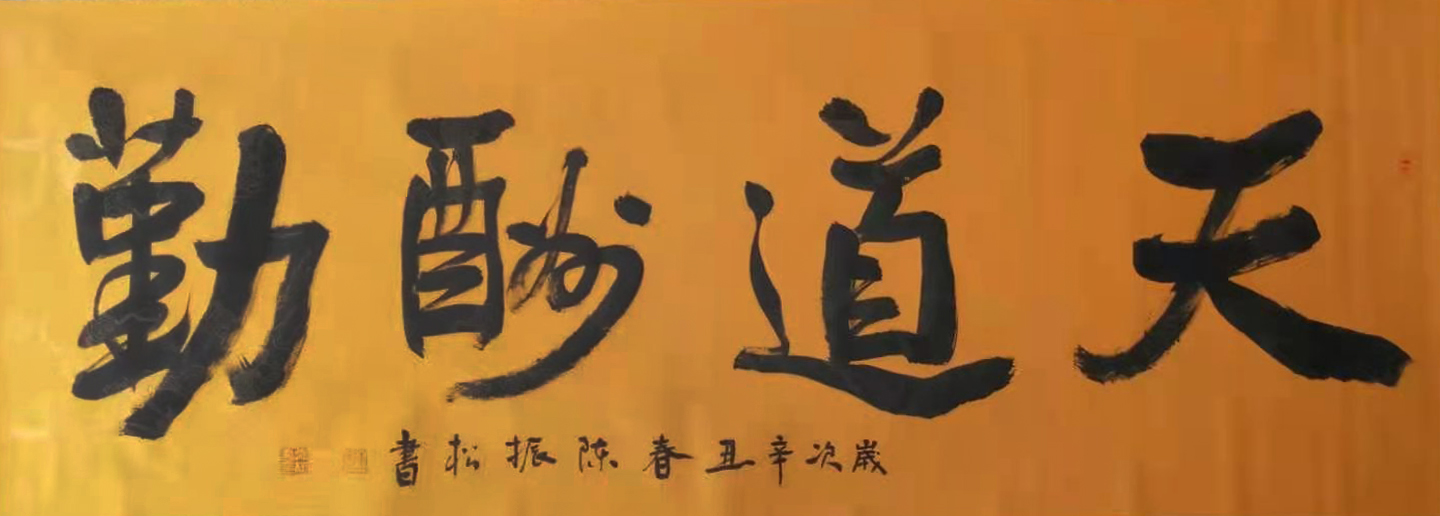 天道酬勤
歲次辛丑春陈振松書